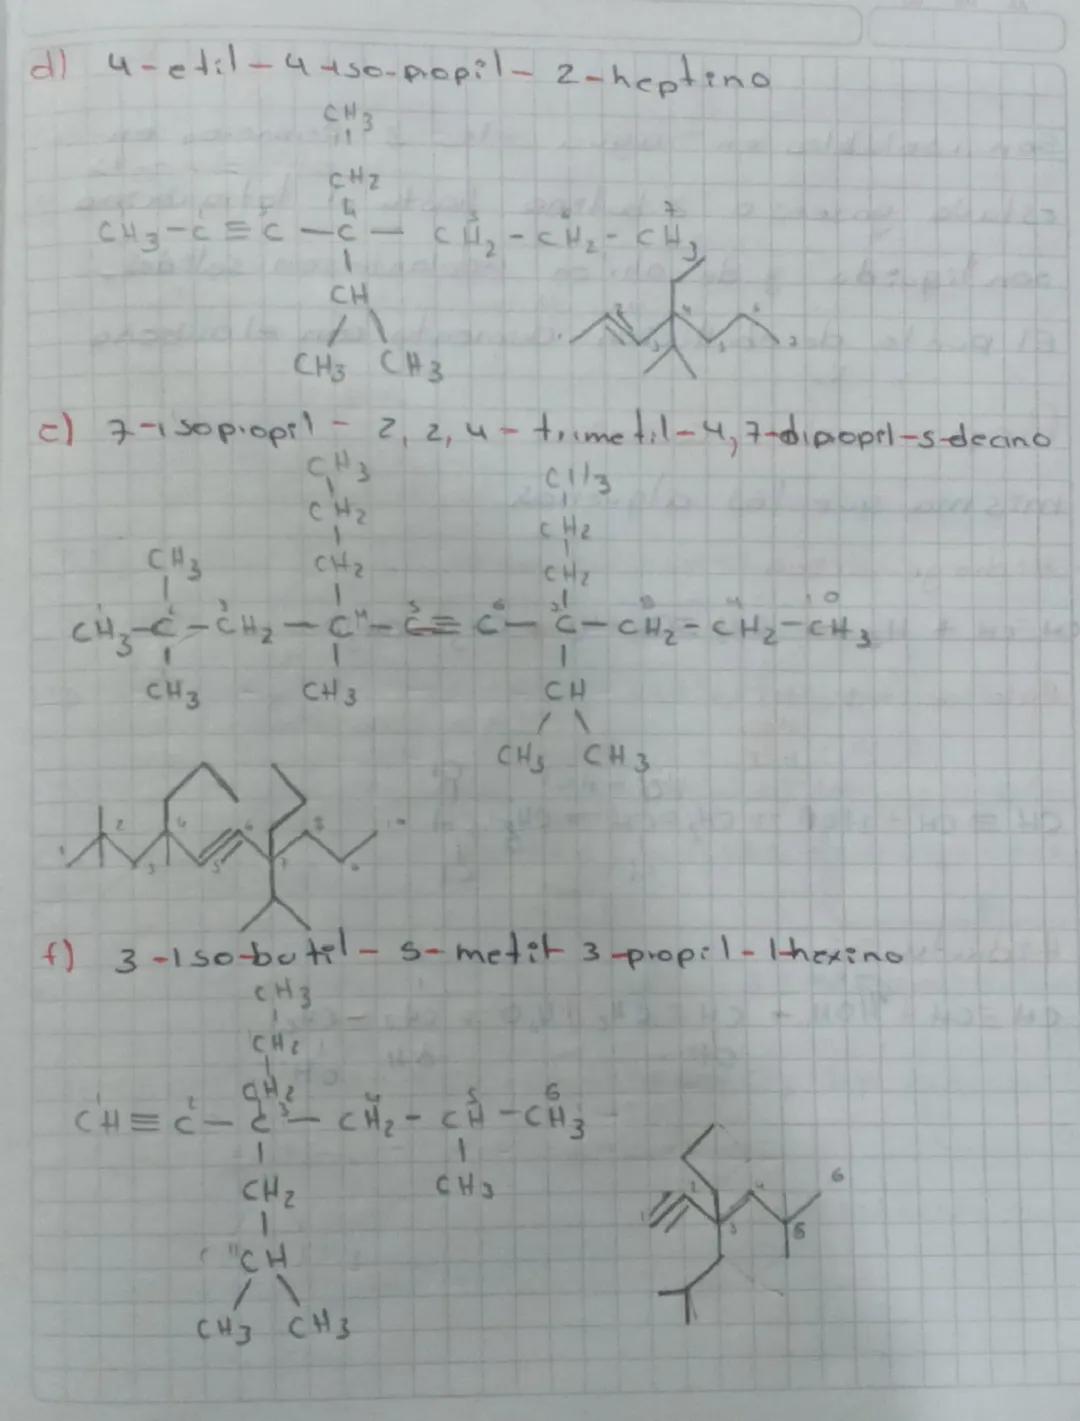 d) 4-etil-4-iso-propil-2-heptino
CH3
CH2
4
CH3-C≡C-C-CH2-CH2-CH3
CH
CH3 CH3
7-isopropil-2,2,4-trimetil-4,7-dipropil-5-decino
CH3 CH3
CH2 CH2
CH3 CH2 CH2
CH3-C-CH2-C-C≡C-C-CH2-CH2-CH3
CH3 CH3 CH
CH3 CH3
f) 3-Iso-butil-5-metil-3-propil-1-hexino
CH3
CH2
CH2
CH≡C-C-CH2-CH-CH3
CH2 CH3
CH
CH3 CH3